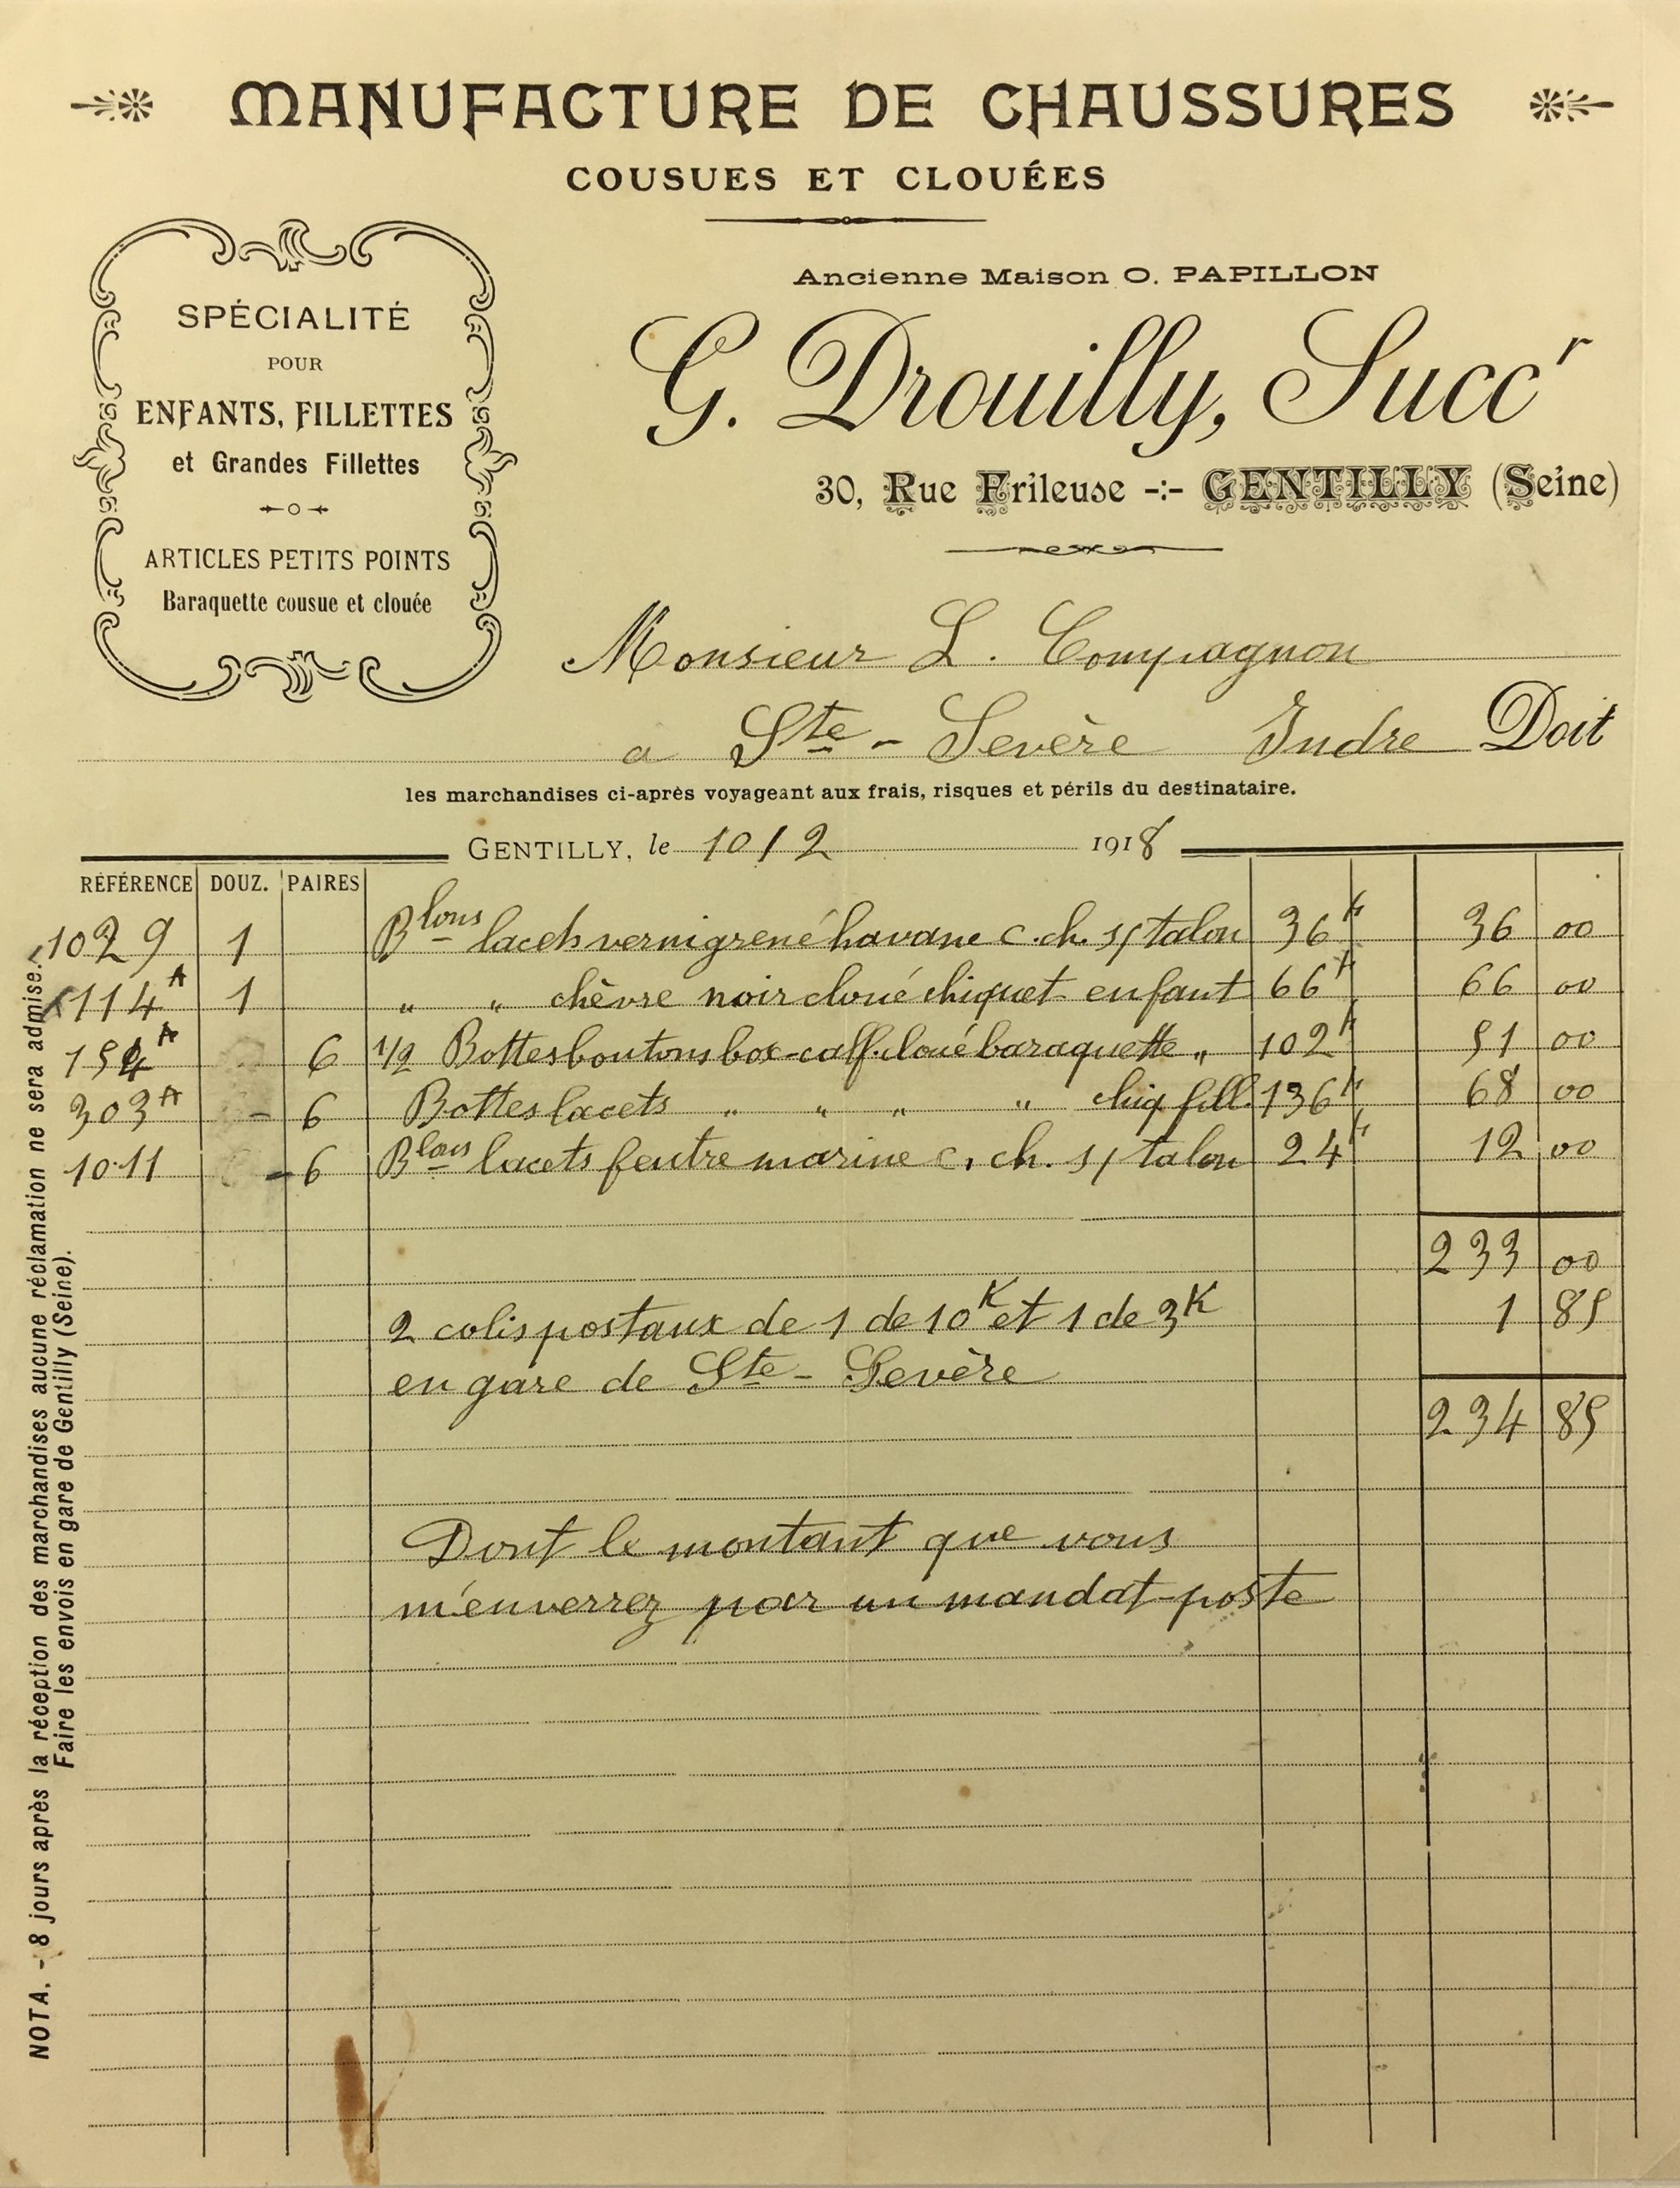 MANUFACTURE DE CHAUSSURES
COUSUES ET CLOUÉES
SPÉCIALITÉ
POUR
ENFANTS, FILLETTES
et Grandes Fillettes
ARTICLES PETITS POINTS
Baraquette cousue et clouée
Ancienne Maison O. PAPILLON
G. Drouilly, Succr
30, Rue Frileuse -:- GENTILLY (Seine)
Monsieur L. Compagnon
a Ste - Sevère Indre Doit
les marchandises ci-après voyageant aux frais, risques et périls du destinataire.
GENTILLY, le 10/2 1918
RÉFÉRENCE DOUZ. PAIRES
1029 1 Blons lacets verni grené havane c. ch. s/ talon 36 36 00
114A 1 " " chèvre noir cloué chiquet enfant 66 66 00
154A 6 1/2 Bottes boutons box-calf cloué baraquette " 102 51 00
303A - 6 Bottes lacets " " " " chiq. fill. 136 68 00
1011 - 6 Blons lacets feutre marine c. ch. s/ talon 24 12 00
233 00
2 colis postaux de 1 de 10K et 1 de 3K 1 85
en gare de Ste - Sevère
234 85
Dont le montant que vous
m'enverrez par un mandat-poste
NOTA. - 8 jours après la réception des marchandises aucune réclamation ne sera admise.
Faire les envois en gare de Gentilly (Seine).